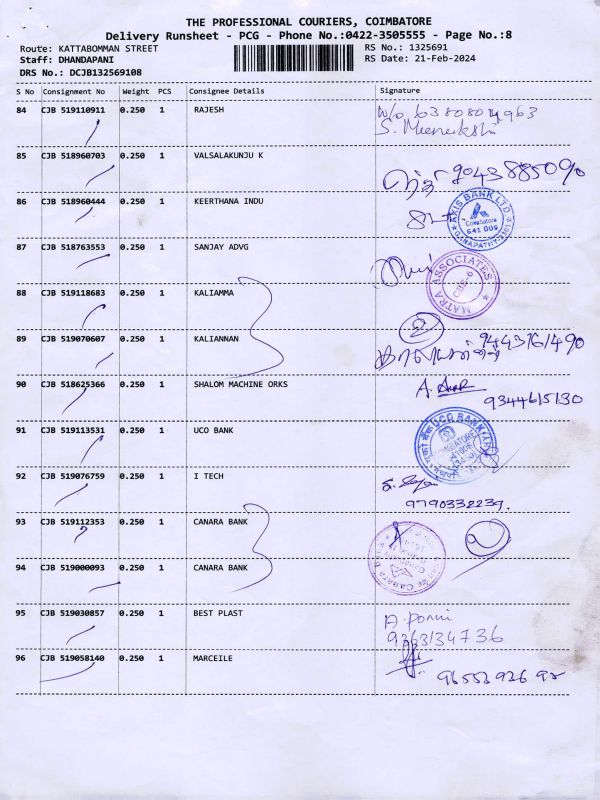 THE PROFESSIONAL COURIERS, COIMBATORE
Delivery Runsheet - PCG - Phone No.:0422-3505555 - Page No.:8
Route: KATTABOMMAN STREET
RS No.: 1325691
Staff: DHANDAPANI
RS Date: 21-Feb-2024
DRS No.: DCJB132569108
S No Consignment No Weight PCS Consignee Details Signature
84 CJB 519110911 0.250 1 RAJESH W/o 6380804963
S. Meenakshi
85 CJB 518960703 0.250 1 VALSALAKUNJU K
86 CJB 518960444 0.250 1 KEERTHANA INDU
AXIS BANK LTD.
Coimbatore
641 006
GANAPATHY
87 CJB 518763553 0.250 1 SANJAY ADVG
MATRA ASSOCIATES
CBE-6
88 CJB 519118683 0.250 1 KALIAMMA
2
89 CJB 519070607 0.250 1 KALIANNAN 9443761490
90 CJB 518625366 0.250 1 SHALOM MACHINE ORKS
9344615130
91 CJB 519113531 0.250 1 UCO BANK
UCO BANK
COIMBATORE
92 CJB 519076759 0.250 1 I TECH
9790332239.
93 CJB 519112353 0.250 1 CANARA BANK
94 CJB 519000093 0.250 1 CANARA BANK
Canara Bank
95 CJB 519030857 0.250 1 BEST PLAST A. Ponni
9363134736
96 CJB 519058140 0.250 1 MARCEILE